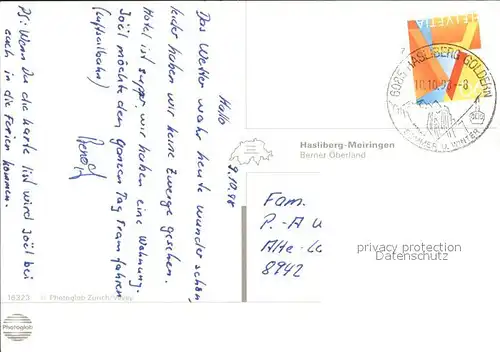 Hallo
9.10.98
Das Wetter wahr heute wunderschön,
leider haben wir keine Zwerge gesehen.
Hotel ist super, wir haben eine Wohnung.
Joël möchte den ganzen Tag Tram fahren
(Luftseilbahn)
PS: Wenn Du die Karte list wird Joël bei
euch in die Ferien kommen.
HELVETIA
6085 HASLIBERG GOLDERN
10.10.98--8
SOMMER U. WINTER
Hasliberg-Meiringen
Berner Oberland
Fam.
P.-A
Alte-
8942
privacy protection
watermark
16323 © Photoglab Zürich/Vevey
Photoglob